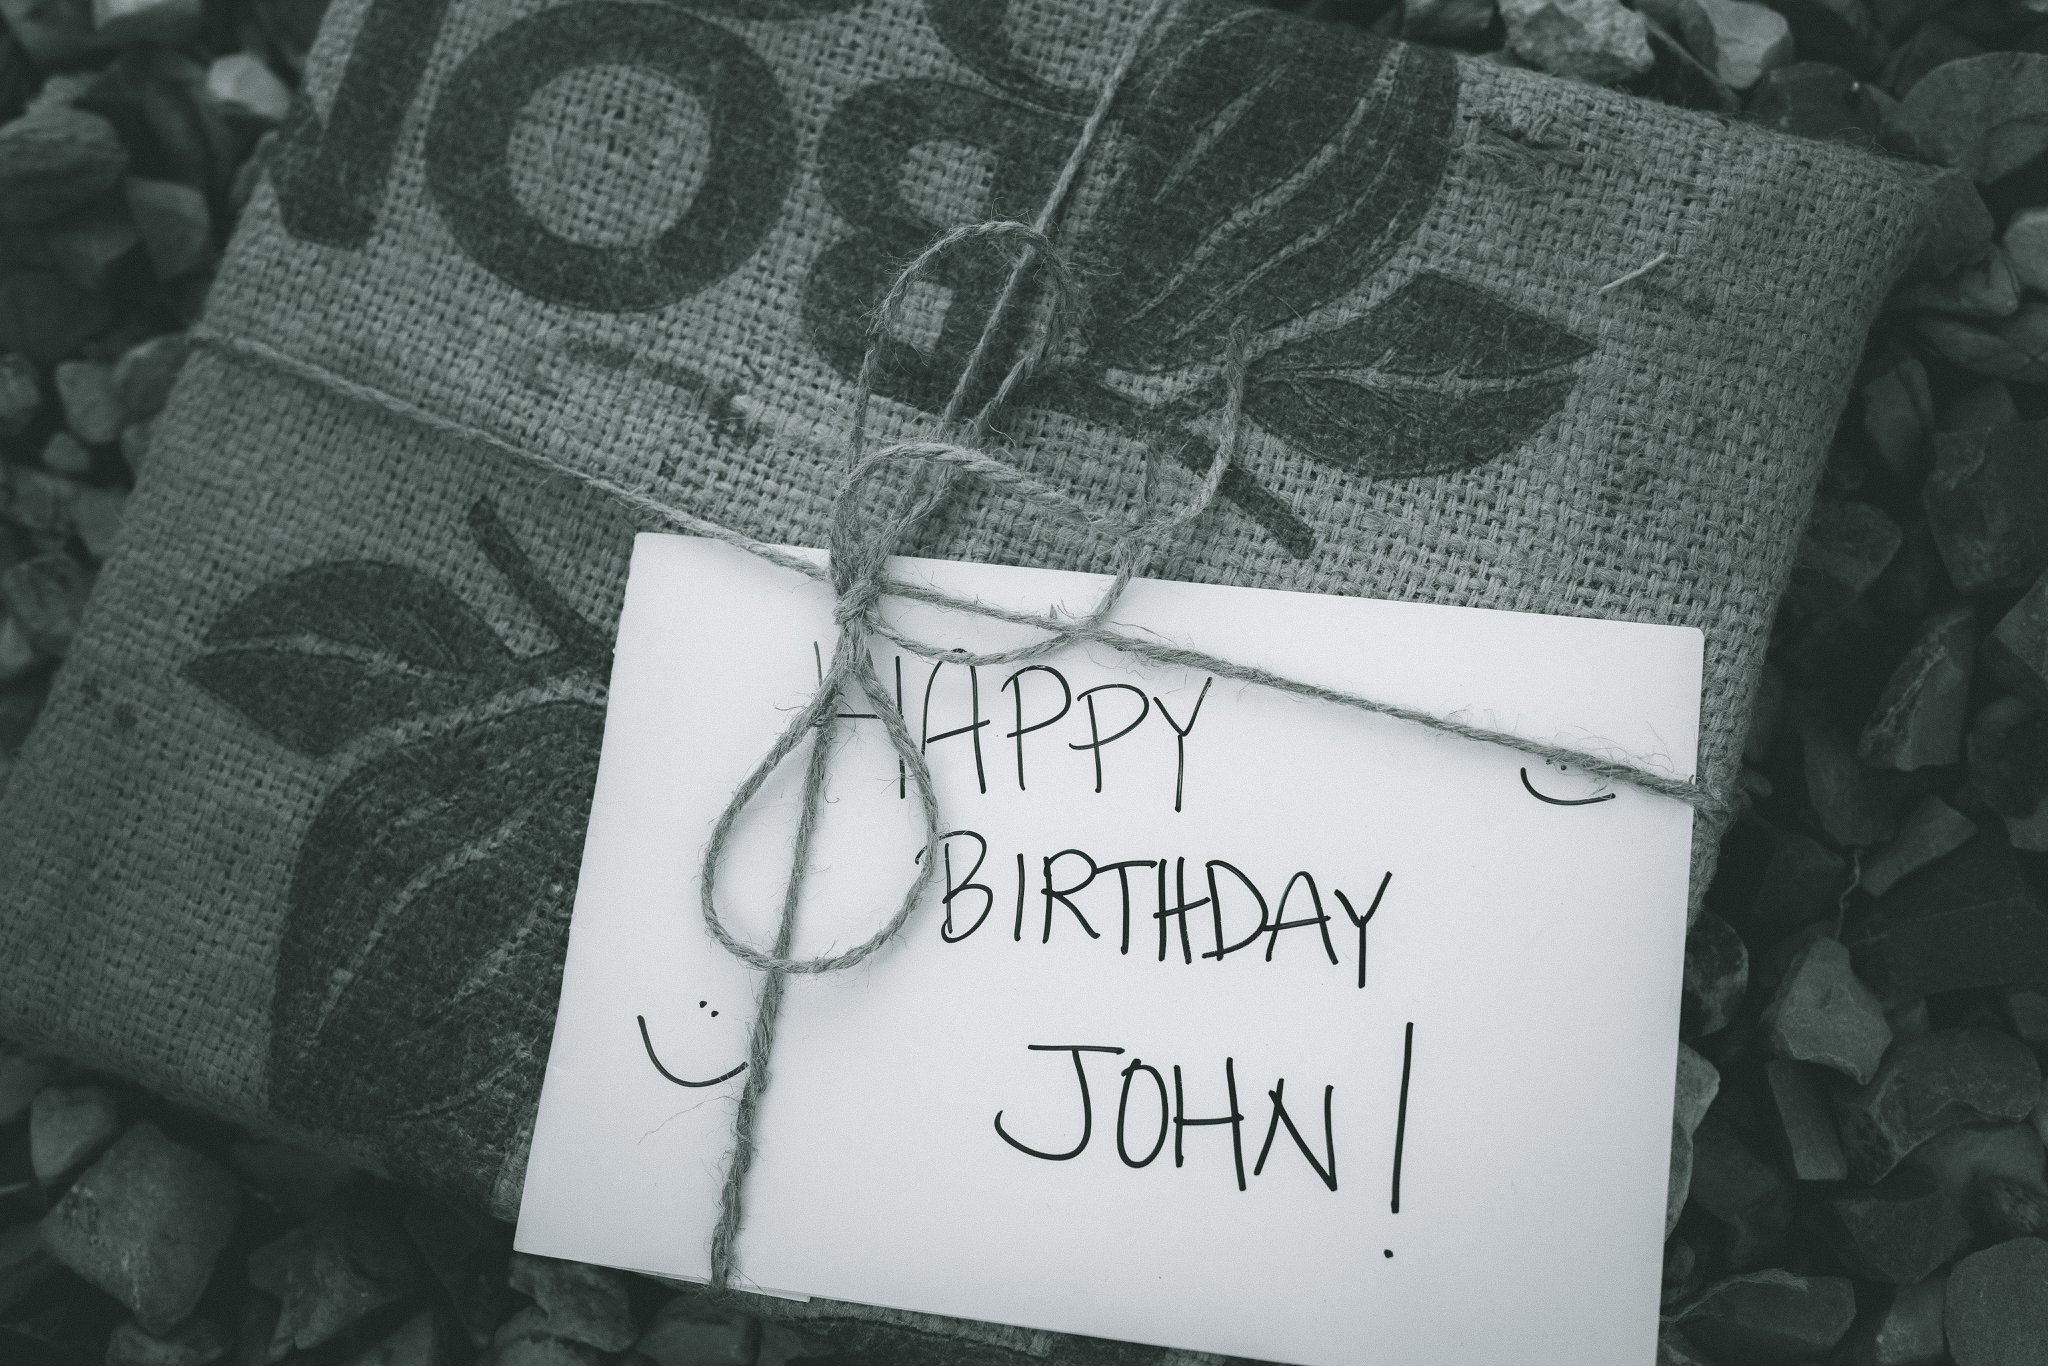 HAPPY
BIRTHDAY
JOHN!